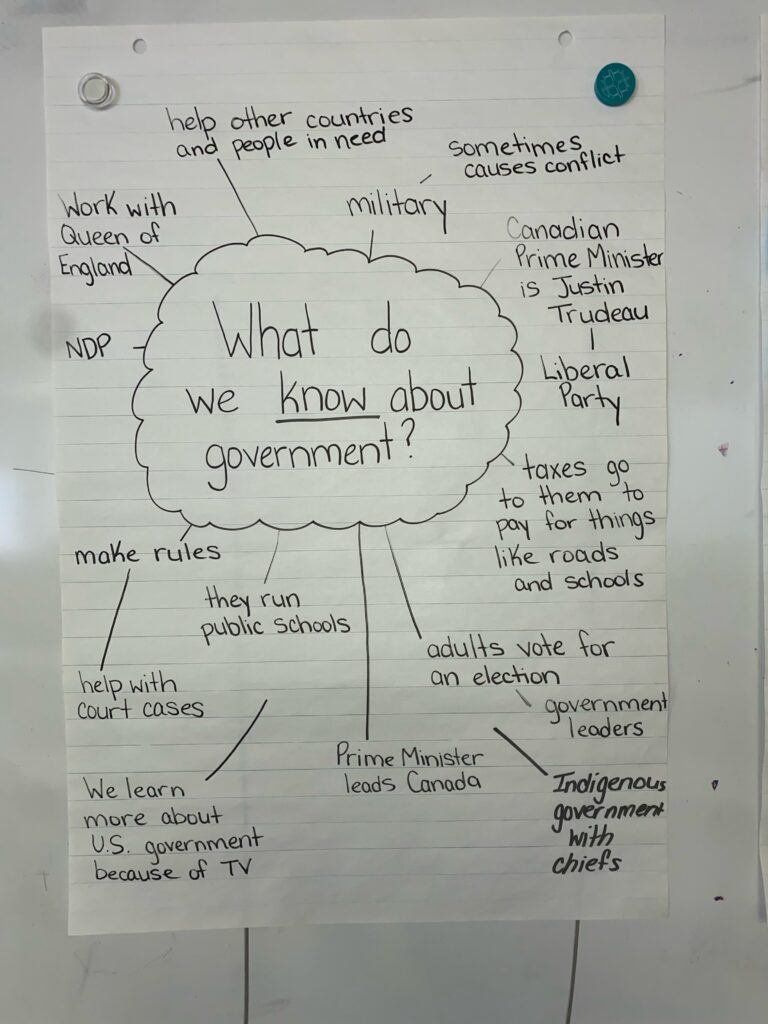 help other countries
and people in need
sometimes
causes conflict
military
Work with
Queen of
England
Canadian
Prime Minister
is Justin
Trudeau
Liberal
Party
NDP
What do
we know about
government?
taxes go
to them to
pay for things
like roads
and schools
make rules
they run
public schools
adults vote for
an election
government
leaders
help with
court cases
Prime Minister
leads Canada
We learn
more about
U.S. government
because of TV
Indigenous
government
with
chiefs